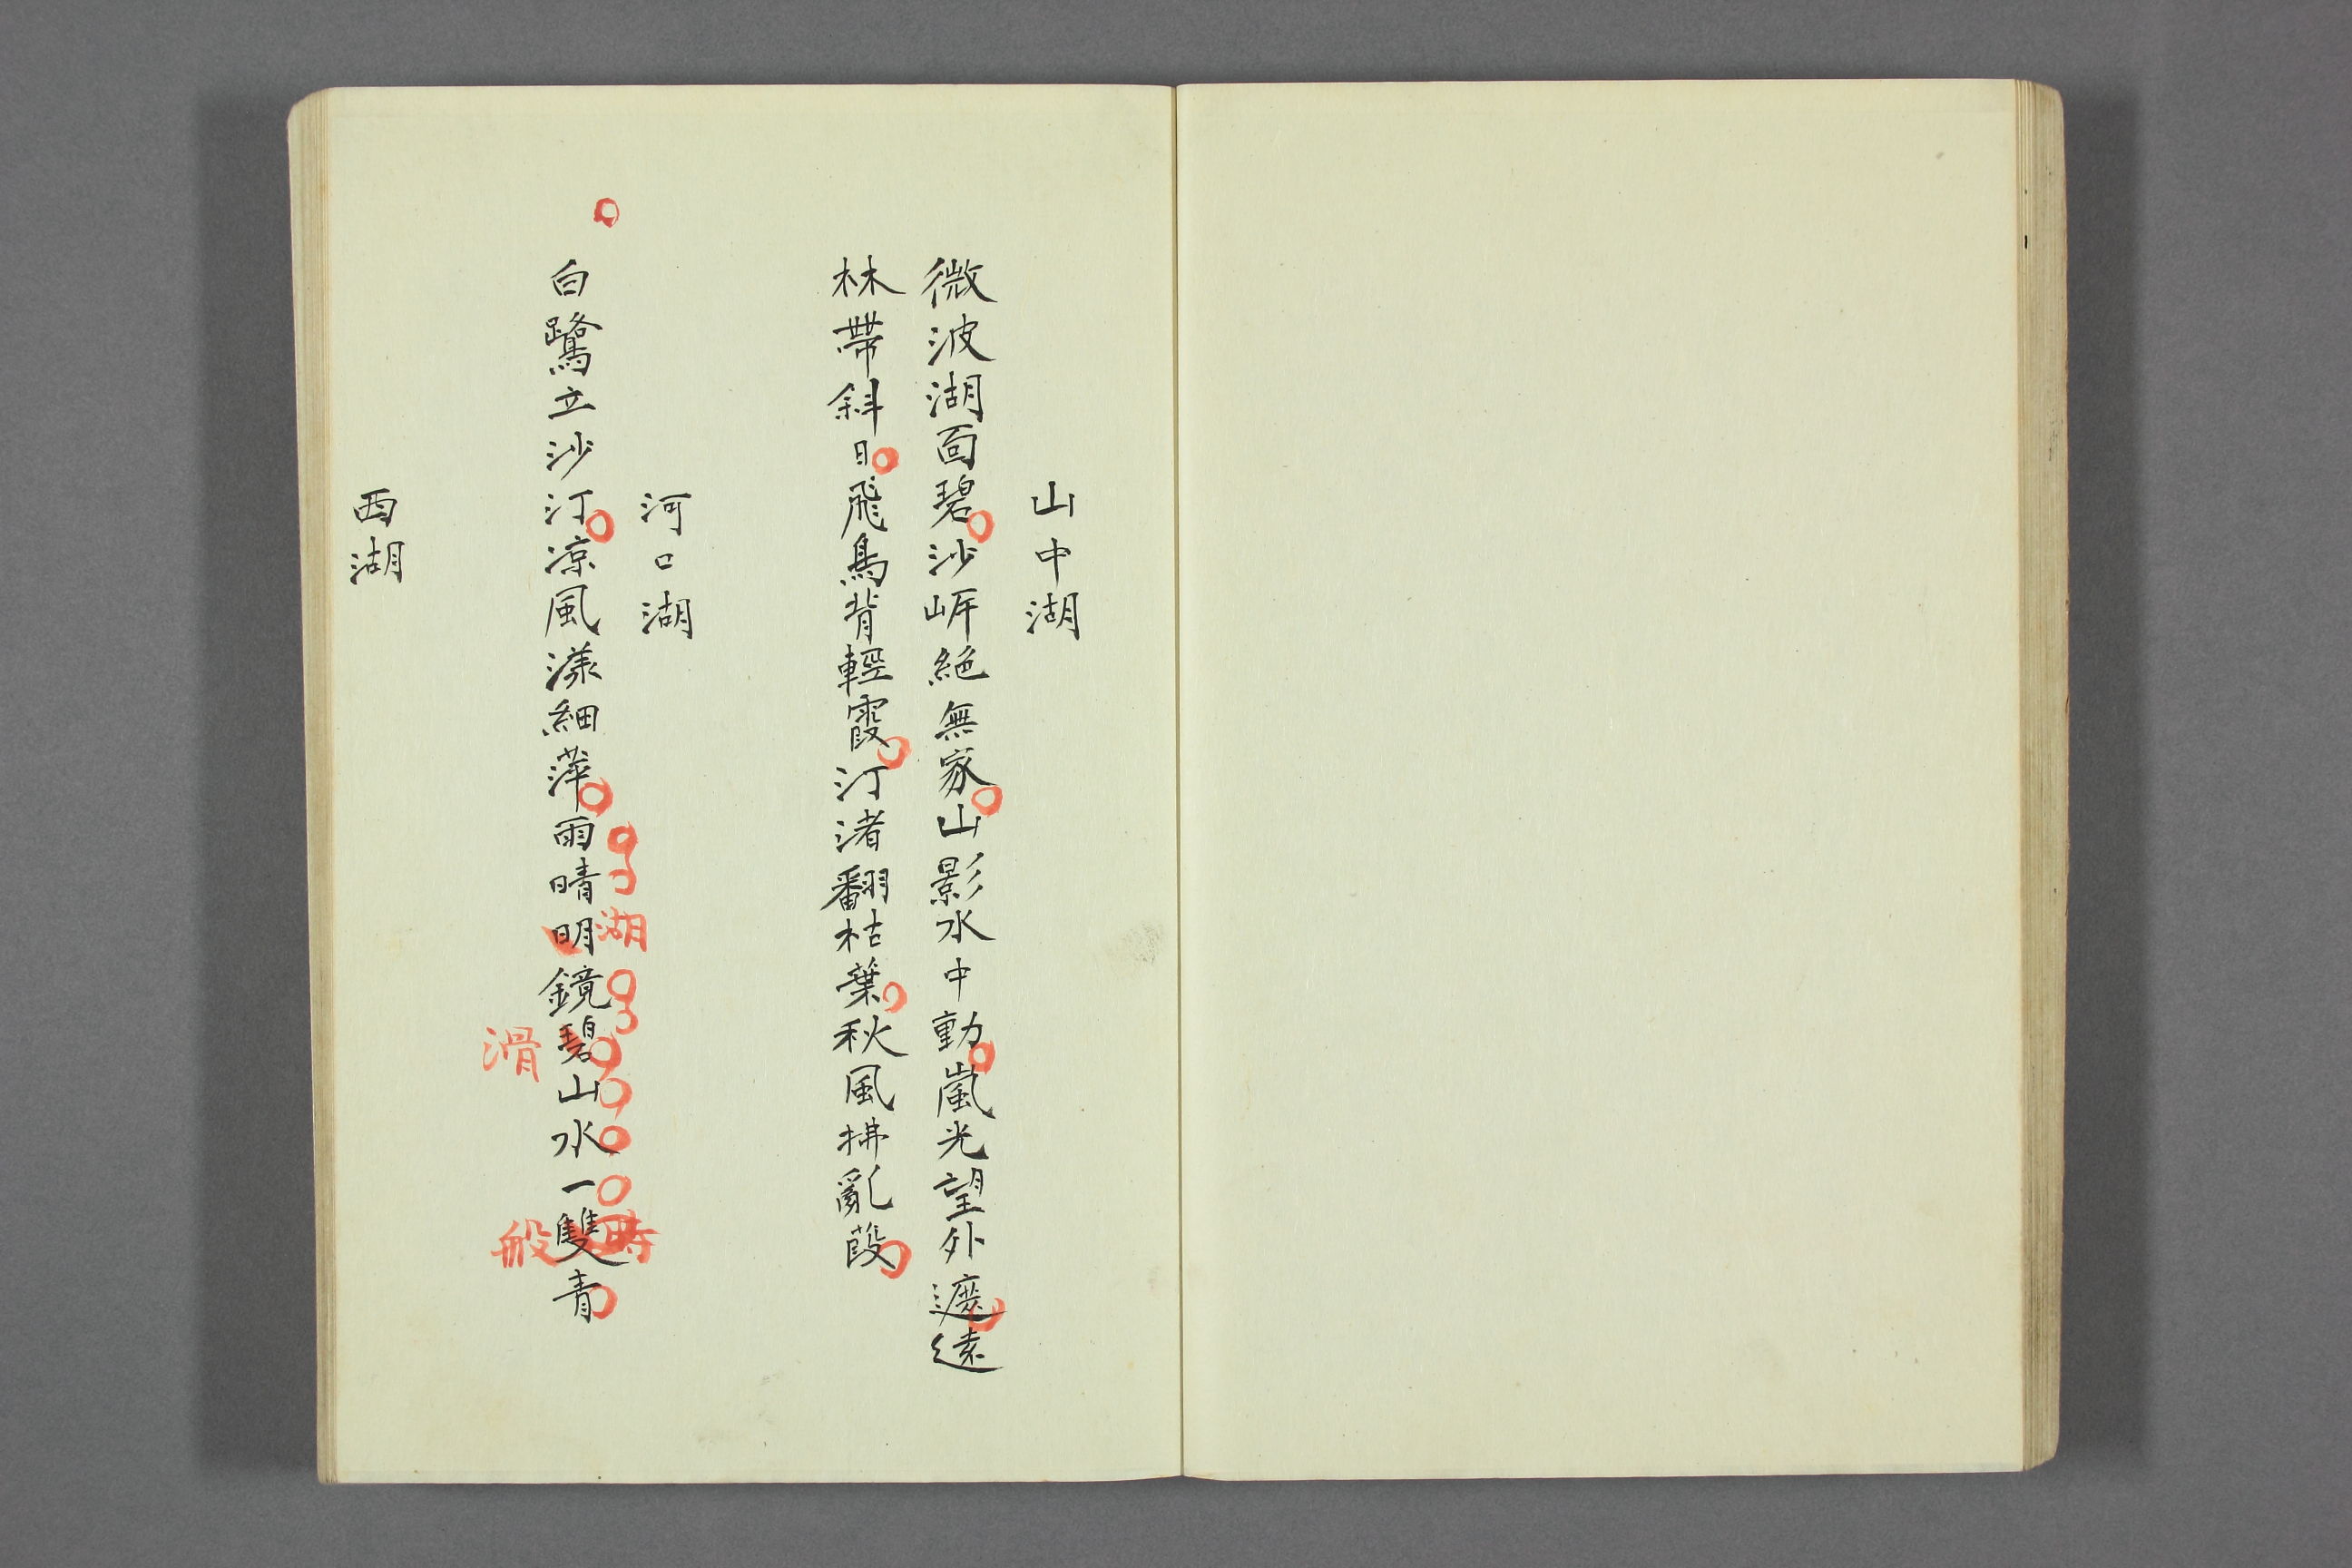 山中湖
微波湖面碧沙岈絶無家山影水中動嵐光望外遮遠
林帶斜日飛鳥背輕霞汀渚翻枯葉秋風拂亂葭
河口湖
白鷺立沙汀凉風漾細萍雨晴明鏡碧山水一雙青
湖
時
滑
般
西湖